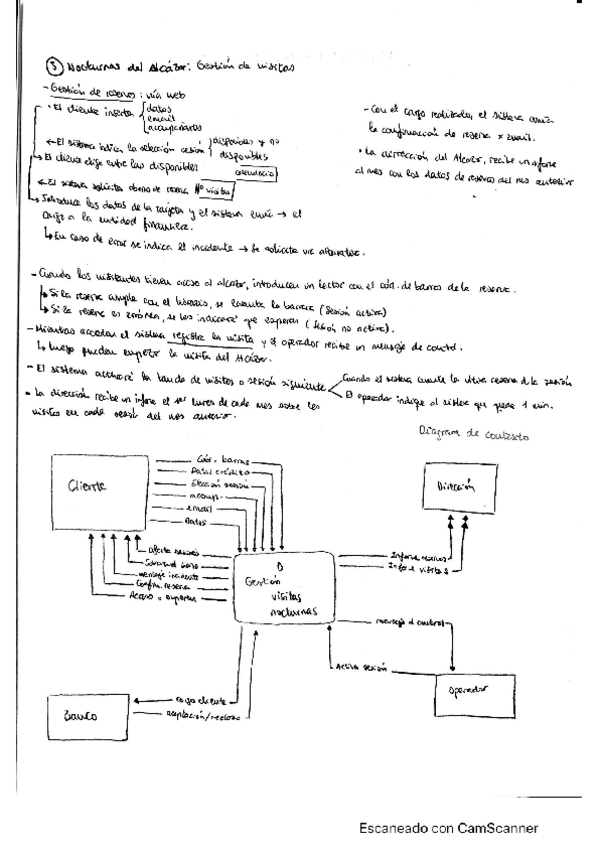 ③ Nocturnas del Alcázar: Gestión de visitas
- Gestión de reservas: vía web
• El cliente inserta { datos
email
acompañantes
← El sistema indica la selección sesión { disponibles y no
disponibles
→ El cliente elige entre las disponibles
← El sistema solicita abono de reserva Nº visitas
→ Introduce los datos de la tarjeta y el sistema envía → el
cargo a la entidad financiera.
↳ En caso de error se indica el incidente → Se solicita vía alternativa.
- Con el cargo realizado, el sistema envía
la confirmación de reserva x email.
• La dirección del Alcázar, recibe un informe
al mes con los datos de reservas del mes anterior
- Cuando los visitantes tienen acceso al alcázar, introducen un lector con el cód. de barras de la reserva.
↳ Si la reserva cumple con el horario, se levanta la barrera (sesión activa)
↳ Si la reserva es errónea, se les indicará que esperen (sesión no activa).
- Mientras accedan el sistema registra la visita y el operador recibe un mensaje de control.
↳ Luego pueden empezar la visita del Alcázar.
- El sistema activará la tanda de visitas o sesión siguiente
Cuando el sistema cuente la última reserva de la sesión
El operador indique al sistema que quede 1 min.
• La dirección recibe un informe el 1er lunes de cada mes sobre las
visitas en cada sesión del mes anterior.
Diagrama de contexto
Cliente
Cód. barras
Datos crédito
Elección sesión
acomp.
email
Datos
Dirección
Informe reservas
Informe visitas
0
Gestión
visitas
nocturnas
oferta sesiones
Solicitud abono
mensaje incidente
Confirm. reserva
Acceso o esperar
mensaje d control
Activa sesión
Operador
Banco
cargo cliente
aceptación/rechazo
Escaneado con CamScanner